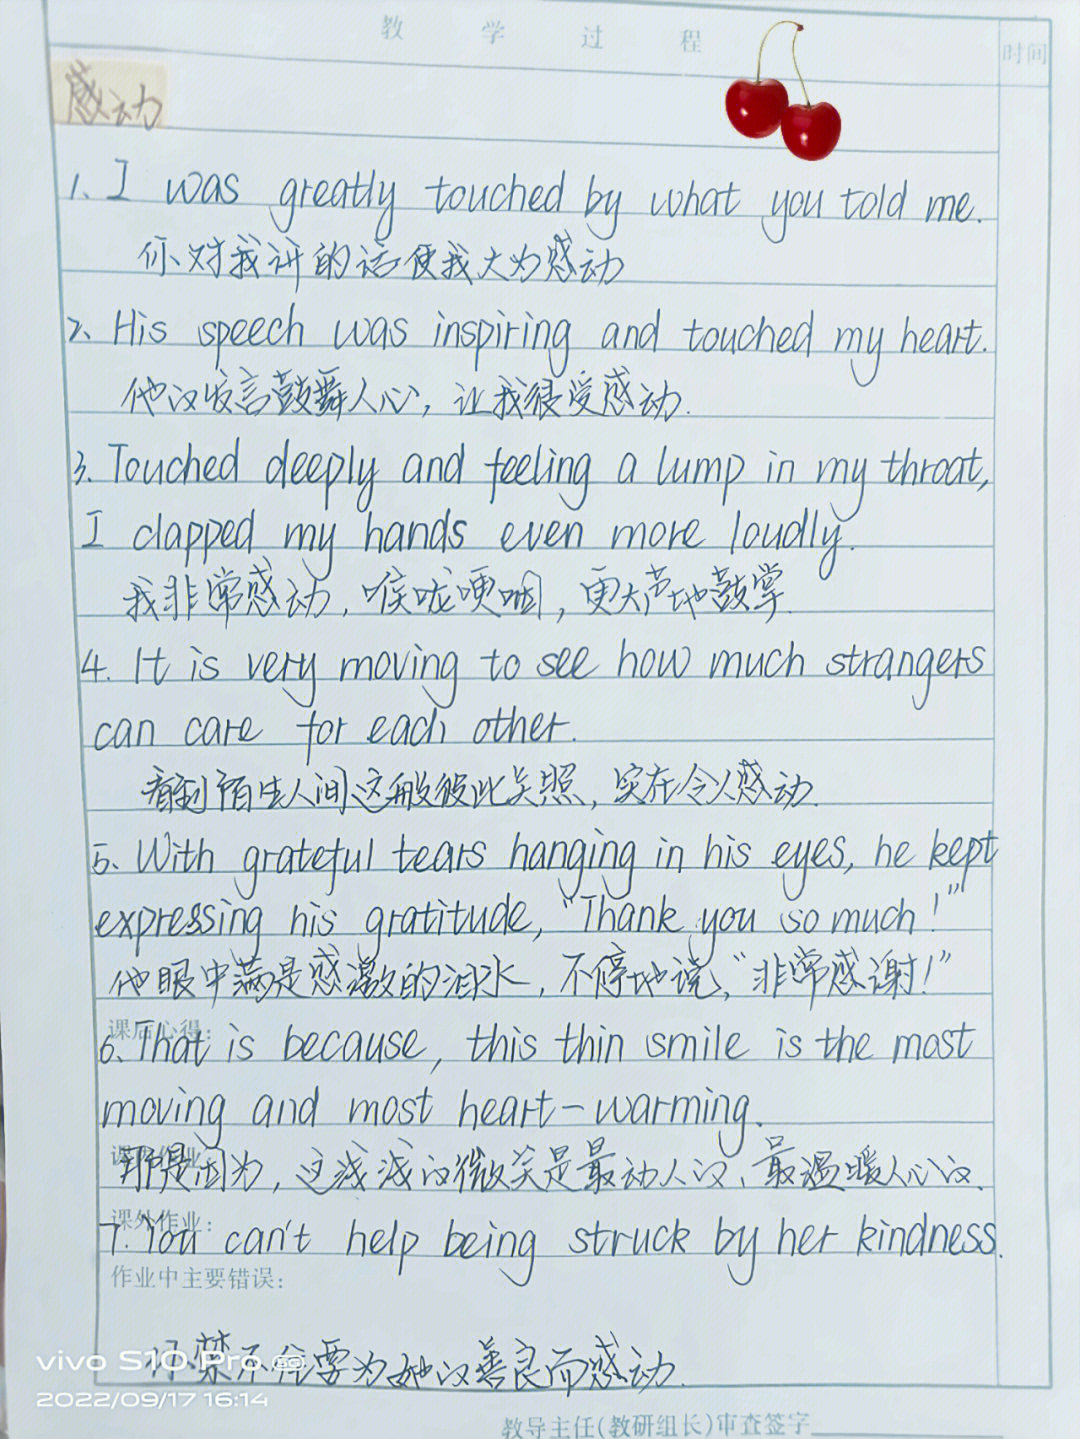 教 学 过 程
时间
感动
1. I was greatly touched by what you told me.
你对我讲的话使我大为感动
2. His speech was inspiring and touched my heart.
他的发言鼓舞人心，让我很受感动.
3. Touched deeply and feeling a lump in my throat,
I clapped my hands even more loudly.
我非常感动，喉咙哽咽，更大声地鼓掌.
4. It is very moving to see how much strangers
can care for each other.
看到陌生人间这般彼此关照，实在令人感动.
5. With grateful tears hanging in his eyes, he kept
expressing his gratitude, "Thank you so much!"
他眼中满是感激的泪水，不停地说，"非常感谢!"
课后心得:
6. That is because, this thin smile is the most
moving and most heart-warming.
那是因为，这浅浅的微笑是最动人的、最温暖人心的.
课外作业:
7. You can't help being struck by her kindness.
作业中主要错误:
你禁不住要为她的善良而感动.
vivo S10 Pro
2022/09/17 16:14
教导主任(教研组长)审查签字